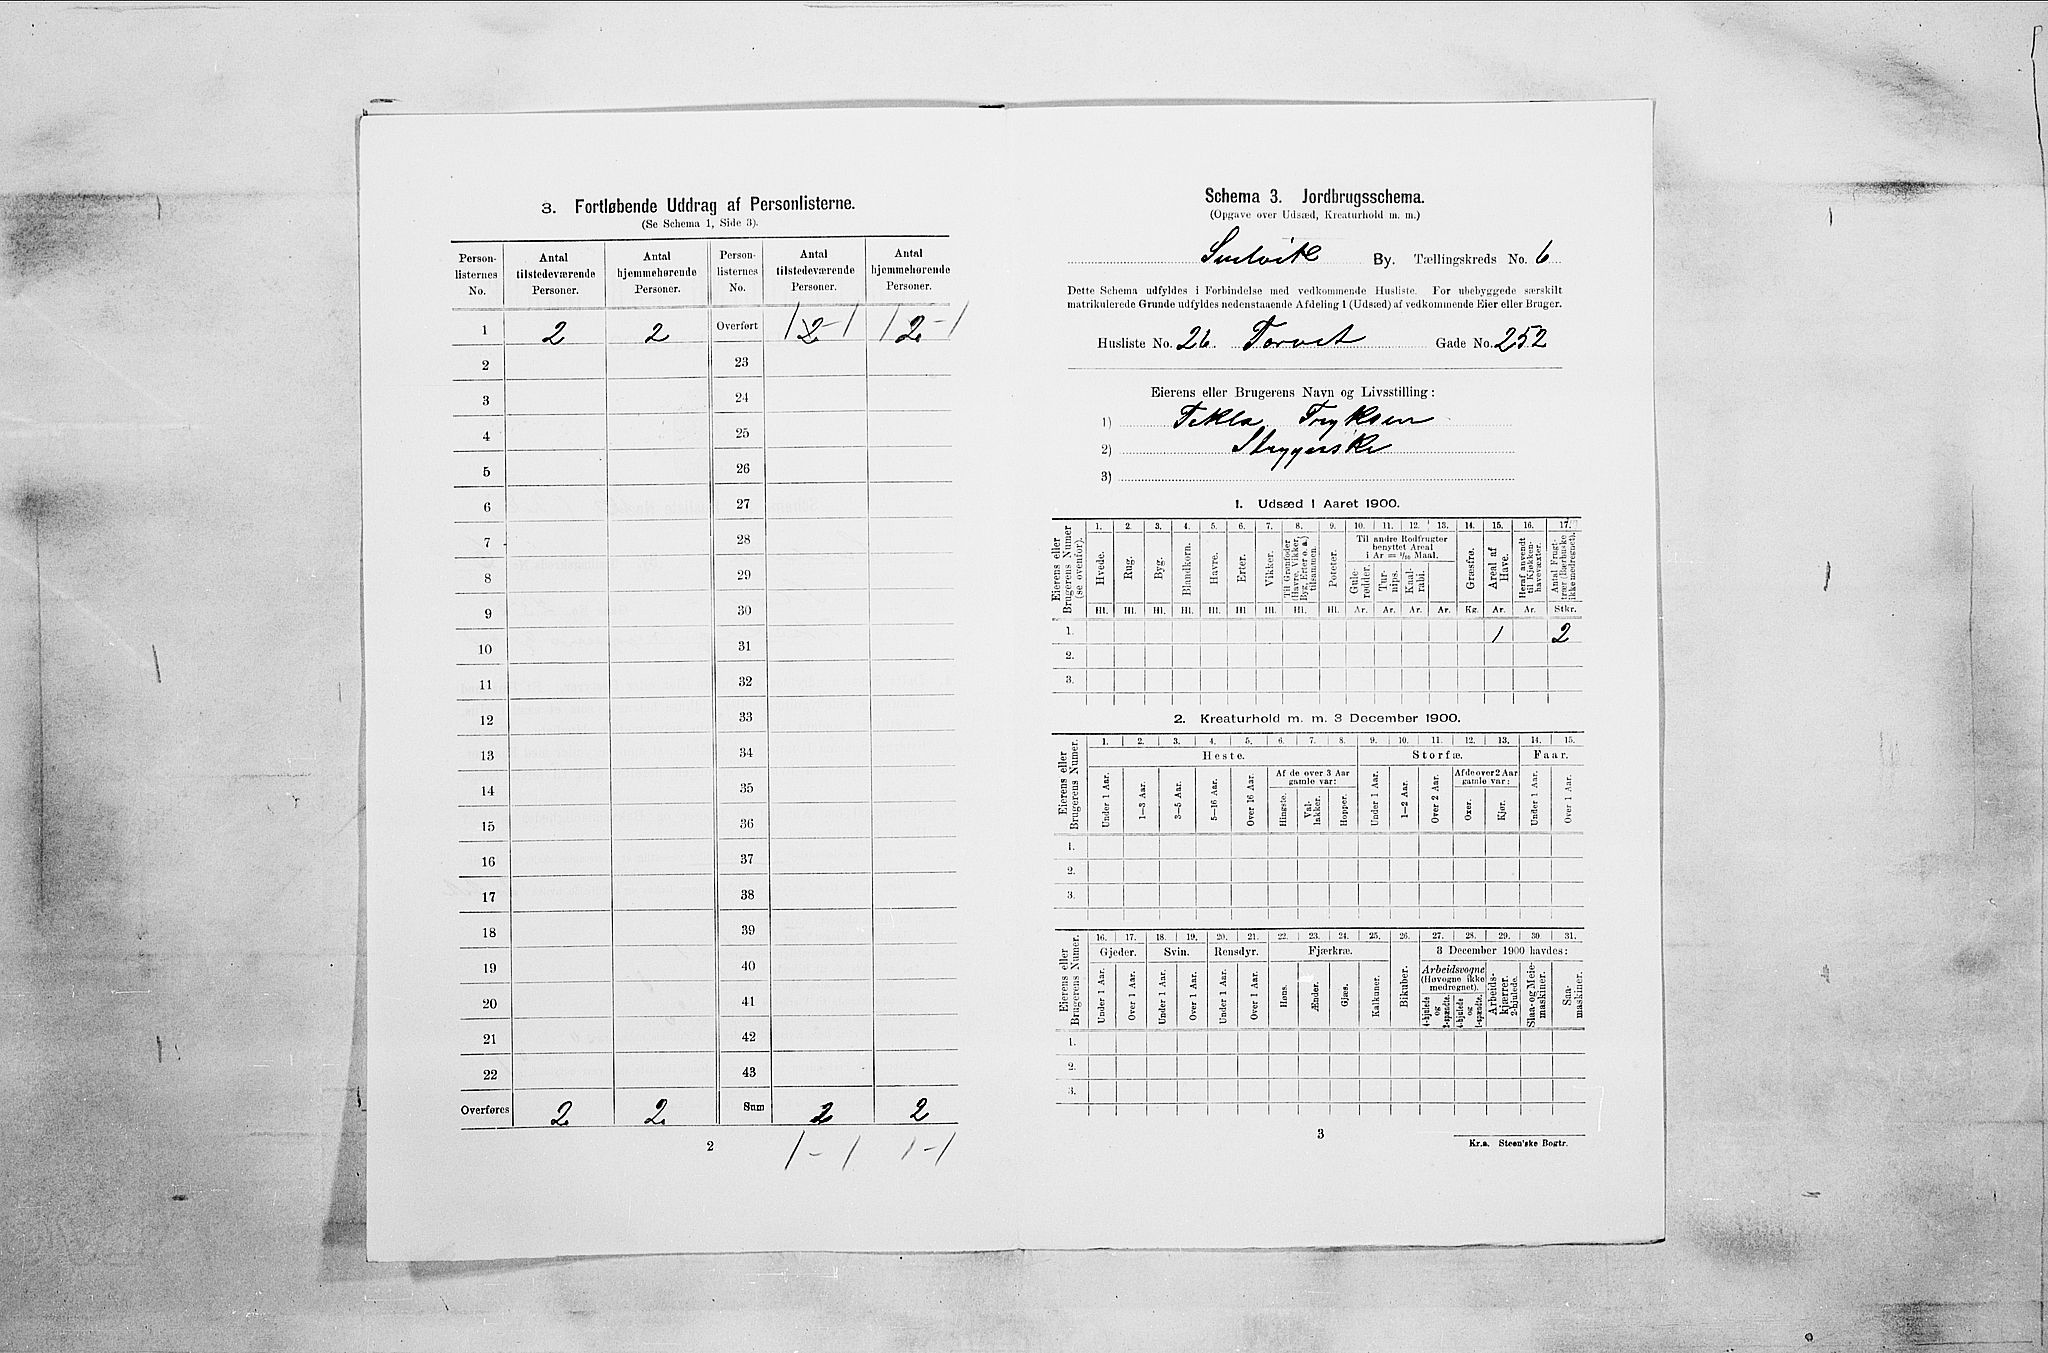 3. Fortløbende Uddrag af Personlisterne.
(Se Schema 1, Side 3).
Person-listernes No. Antal tilstedeværende Personer. Antal hjemmehørende Personer. Person-listernes No. Antal tilstedeværende Personer. Antal hjemmehørende Personer.
1 2 2 Overført 1 2 - 1 1 2 - 1
2 23
3 24
4 25
5 26
6 27
7 28
8 29
9 30
10 31
11 32
12 33
13 34
14 35
15 36
16 37
17 38
18 39
19 40
20 41
21 42
22 43
Overføres 2 2 Sum 2 2
1 - 1 1 - 1
2
Schema 3. Jordbrugsschema.
(Opgave over Udsæd, Kreaturhold m. m.)
By. Tællingskreds No. 6
Dette Schema udfyldes i Forbindelse med vedkommende Husliste. For ubebyggede særskilt
matrikulerede Grunde udfyldes nedenstaaende Afdeling 1 (Udsæd) af vedkommende Eier eller Bruger.
Husliste No. 26. Torvet Gade No. 252
Eierens eller Brugerens Navn og Livsstilling:
1) Tekla
2) Strygerske
3)
1. Udsæd i Aaret 1900.
Eierens eller Brugerens Numer (se ovenfor).
1. 2. 3. 4. 5. 6. 7. 8. 9. 10. 11. 12. 13. 14. 15. 16. 17.
Hvede. Rug. Byg. Blandkorn. Havre. Erter. Vikker. Til Grønfoder (Havre, Vikker, Byg, Erter o. a.) tilsammen. Poteter. Til andre Rodfrugter benyttet Areal i Ar = 1/10 Maal. Gule-rødder. Tur-nips. Kaal-rabi. Græsfrø. Areal af Have. Heraf anvendt til Kjøkken-havevæxter. Antal Frugt-trær (Bærbuske ikke medregnet).
Hl. Hl. Hl. Hl. Hl. Hl. Hl. Hl. Hl. Ar. Ar. Ar. Ar. Kg. Ar. Ar. Stkr.
1. 1 2
2.
3.
2. Kreaturhold m. m. 3 December 1900.
Eierens eller Brugerens Numer.
1. 2. 3. 4. 5. 6. 7. 8. 9. 10. 11. 12. 13. 14. 15.
Heste. Storfæ. Faar.
Under 1 Aar. 1—3 Aar. 3—5 Aar. 5—16 Aar. Over 16 Aar. Af de over 3 Aar gamle var: Hingste. Val-lakker. Hopper. Under 1 Aar. 1—2 Aar. Over 2 Aar. Af de over 2 Aar gamle var: Oxer. Kjør. Under 1 Aar. Over 1 Aar.
1.
2.
3.
Eierens eller Brugerens Numer.
16. 17. 18. 19. 20. 21. 22. 23. 24. 25. 26. 27. 28. 29. 30. 31.
Gjeder. Svin. Rensdyr. Fjærkræ. Bikuber. 3 December 1900 havdes:
Under 1 Aar. Over 1 Aar. Under 1 Aar. Over 1 Aar. Under 1 Aar. Over 1 Aar. Høns. Ænder. Gjæs. Kalkuner. Arbeidsvogne (Høvogne ikke medregnet). 4-hjulede og 2-spændte. 4-hjulede og 1-spændte. Arbeids-kjærrer. 2-hjulede. Slaa- og Meie-maskiner. Saa-maskiner.
1.
2.
3.
3
Kr.a. Steen'ske Bogtr.